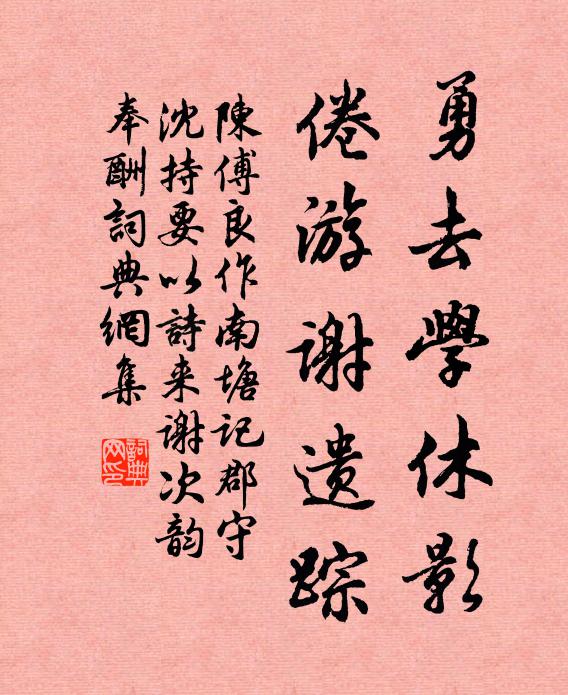 勇去學休影
倦游謝遺踪
陳傅良作南塘記郡守
沈持要以詩来谢次韵
奉酬詞典網集
詞典网印